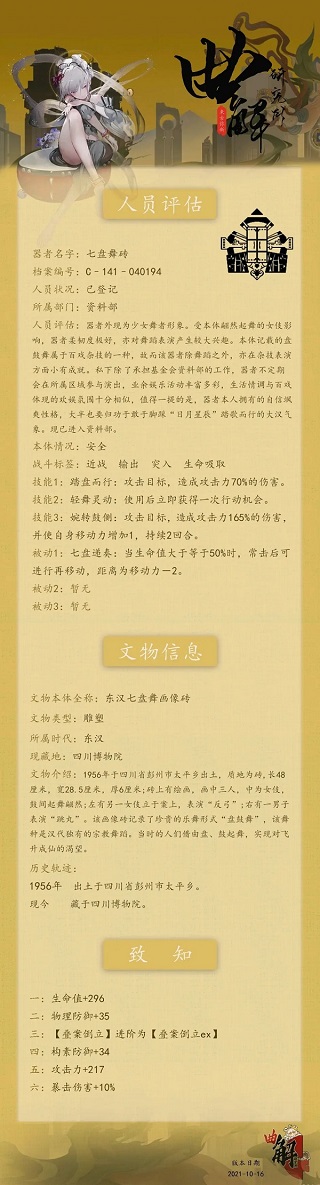 曲解
研究院
人员评估
器者名字：七盘舞砖
档案编号：C－141－040194
人员状况：已登记
所属部门：资料部
人员评估：器者外现为少女舞者形象。受本体翩然起舞的女伎影
响，器者柔韧度极好，亦对舞蹈表演产生较大兴趣。本体记载的盘
鼓舞属于百戏杂技的一种，故而该器者除舞蹈之外，亦在杂技表演
方面小有成就。私下除了承担基金会资料部的工作，器者不定期
会在所属区域参与演出，业余娱乐活动丰富多彩，生活情调与百戏
体现的欢娱氛围十分相似，值得一提的是，器者本人拥有的自信飒
爽性格，大半也要归功于敢于脚踩“日月星辰”踏歌而行的大汉气
象。现已进入资料部。
本体情况：安全
战斗标签：近战 输出 突入 生命吸取
技能1：踏盘而行：攻击目标，造成攻击力70%的伤害。
技能2：轻舞灵动：使用后立即获得一次行动机会。
技能3：婉转鼓侧：攻击目标，造成攻击力165%的伤害，
并使自身移动力增加1，持续2回合。
被动1：七盘递奏：当生命值大于等于50%时，常击后可
进行再移动，距离为移动力－2。
被动2：暂无
被动3：暂无
文物信息
文物本体全称：东汉七盘舞画像砖
文物类型：雕塑
所属时代：东汉
现藏地：四川博物院
文物介绍：1956年于四川省彭州市太平乡出土，质地为砖，长48
厘米，宽28.5厘米，厚6厘米；砖上有绘画，画中三人，中为女伎，
鼓间起舞翩然；左有另一女伎立于案上，表演“反弓”；右有一男子
表演“跳丸”。该画像砖记录了珍贵的乐舞形式“盘鼓舞”，该舞
种是汉代独有的宗教舞蹈。当时的人们借由盘、鼓起舞，实现对飞
升成仙的渴望。
历史轨迹：
1956年 出土于四川省彭州市太平乡。
现今 藏于四川博物院。
致 知
一：生命值+296
二：物理防御+35
三：【叠案倒立】进阶为【叠案倒立ex】
四：构素防御+34
五：攻击力+217
六：暴击伤害+10%
曲解
版本日期
2021-10-16